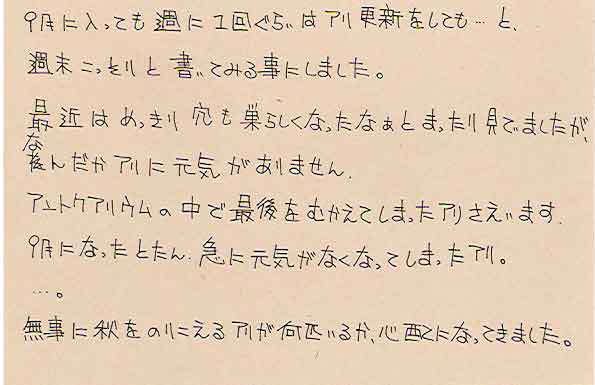 9月に入っても週に1回ぐらいはアリ更新をしても…と、
週末こっそりと書いてみる事にしました。
最近はめっきり穴も巣らしくなったなぁとまったり見ていましたが、
なんだかアリに元気がありません.
アントクアリウムの中で最後をむかえてしまったアリさえいます.
9月になったとたん.急に元気がなくなってしまったアリ。
…。
無事に秋をのりこえるアリが何匹いるか、心配になってきました。